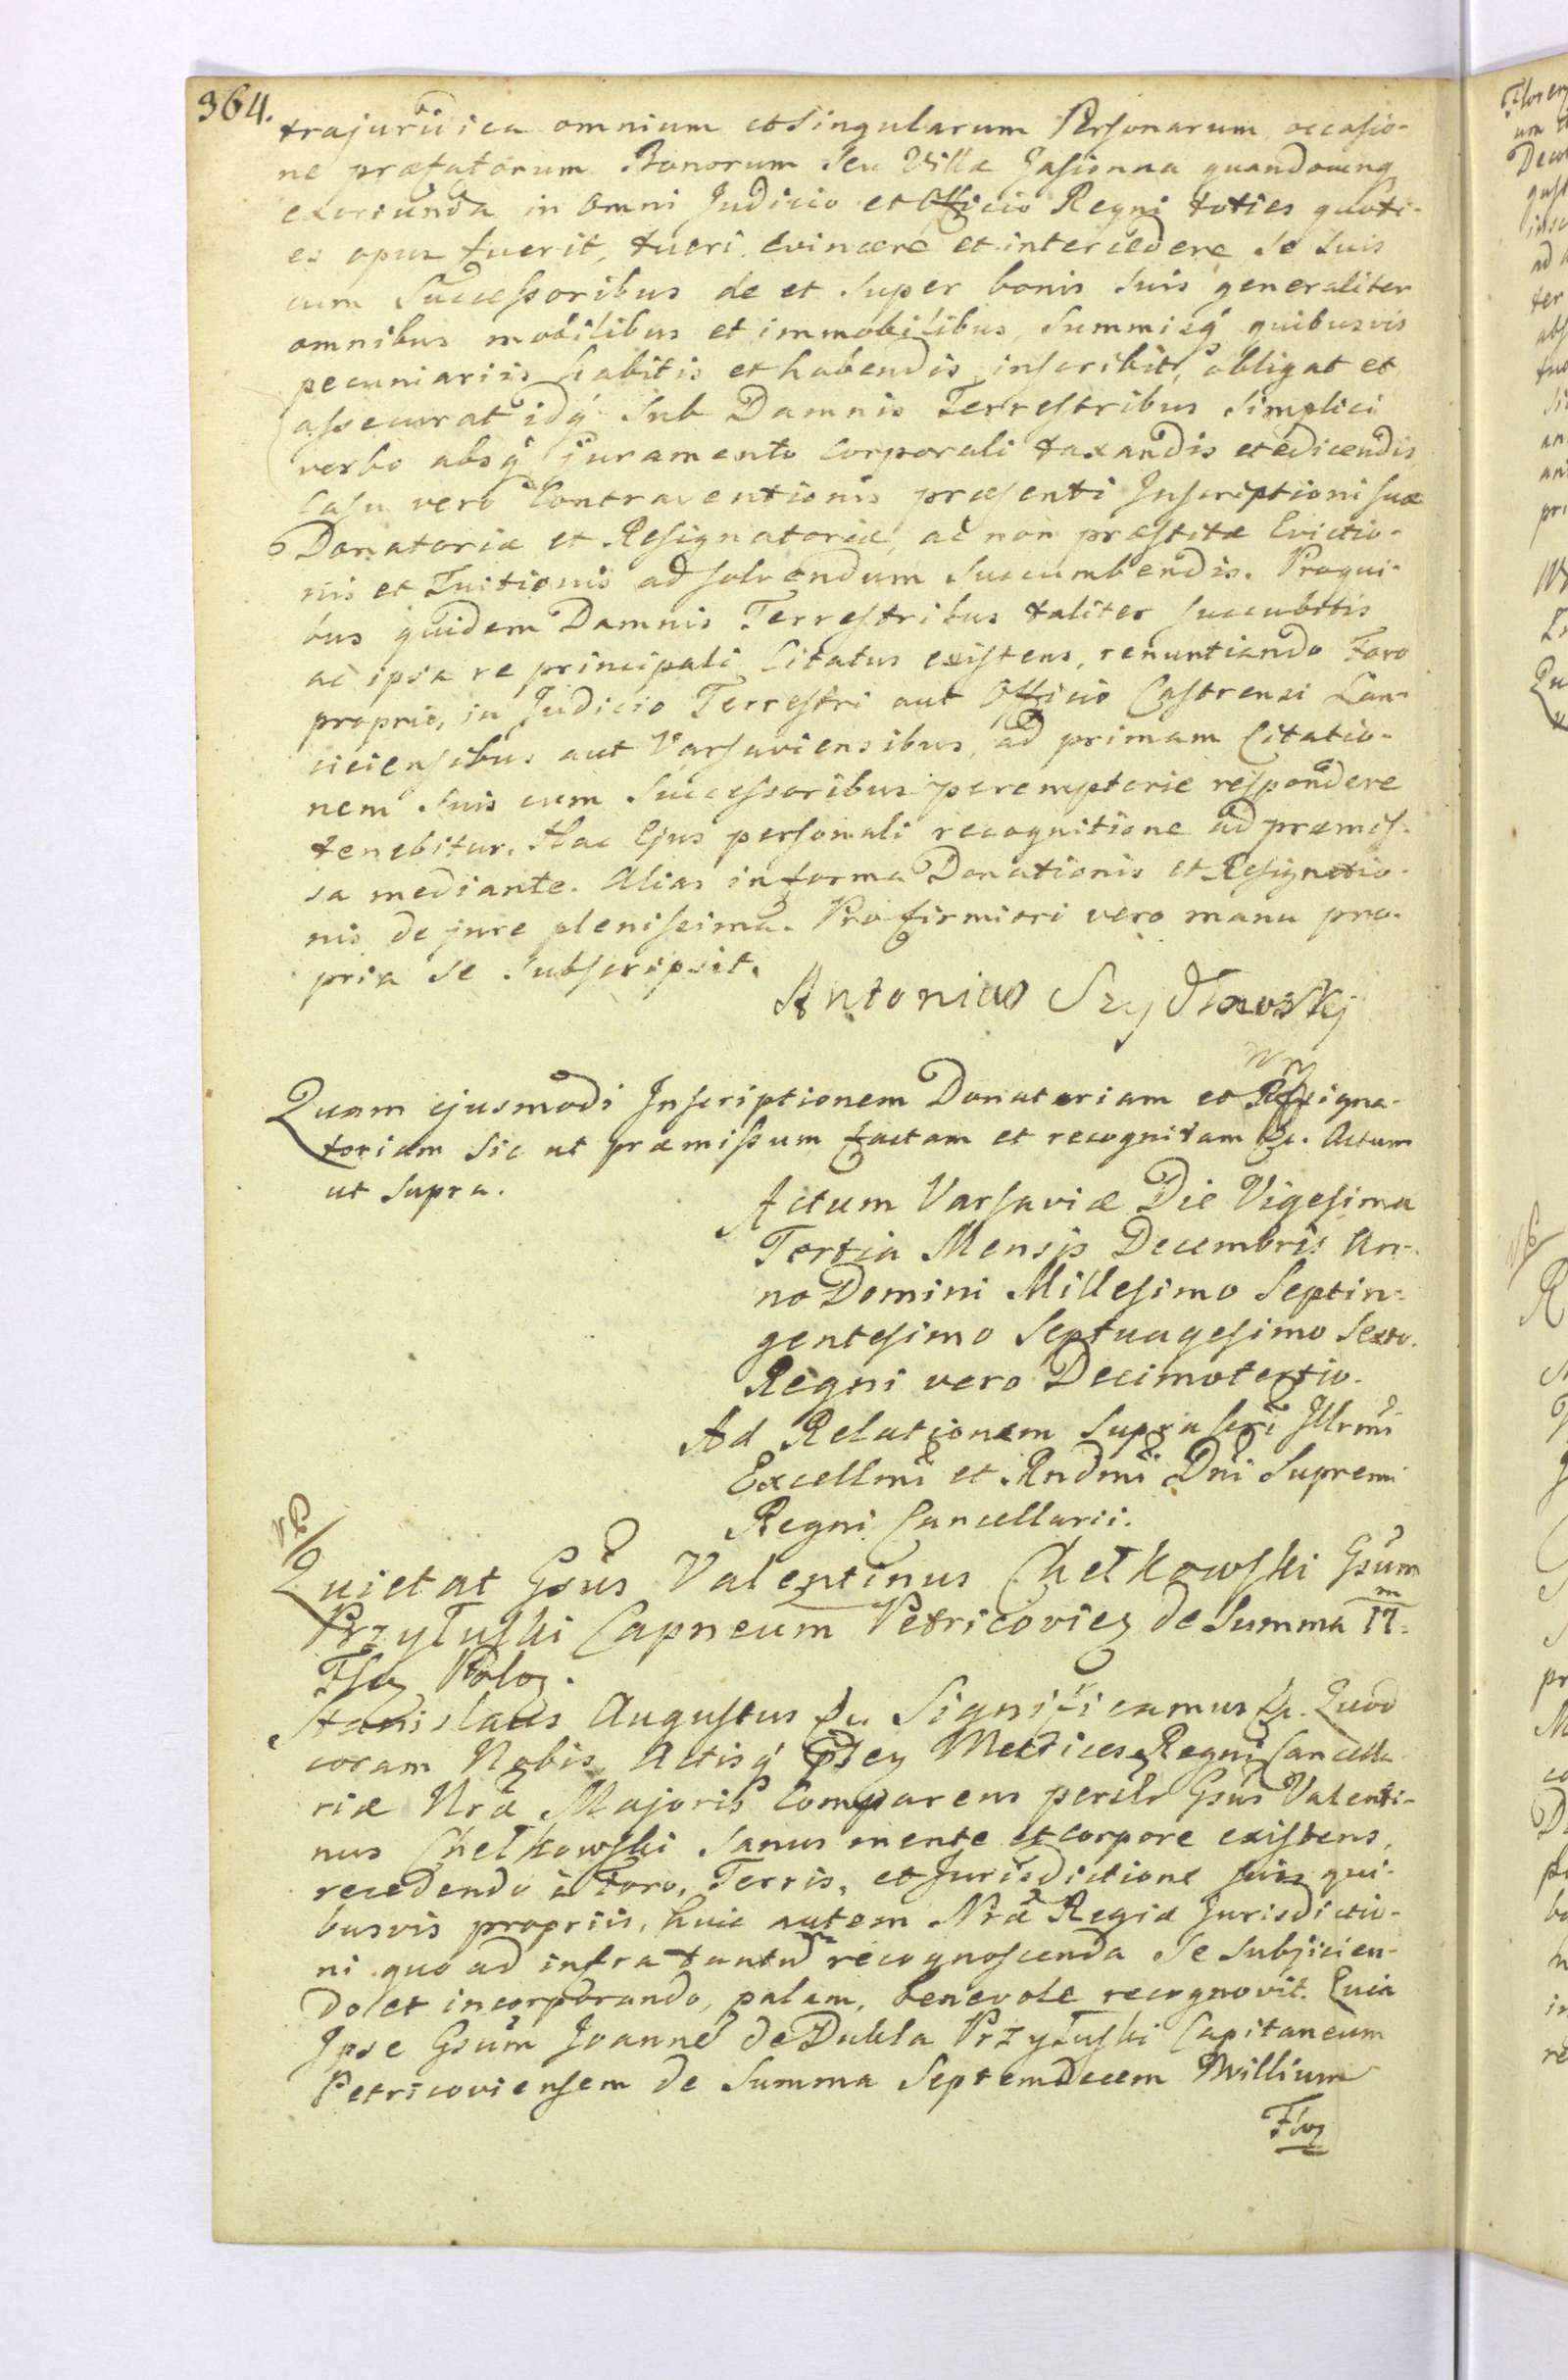 364.
trajuridica omnium et Singularum Personarum occasio-
ne præfatorum Bonorum Seu Villæ Jasionna quandocunq
exoriunda in omni Judicio et Officio Regni toties quoti-
es opus fuerit, tueri, evincere et intercedere se suis
cum Successoribus de et super bonis suis generaliter
omnibus mobilibus et immobilibus, Summisq quibusvis
pecuniariis habitis et habendis inscribit, obligat et
assecurat idq Sub Damnis Terrestribus Simplici
verbo absq juramento Corporali taxandis et edicendis
Casu vero Contraventionis præsenti Inscriptioni suæ
Donatoriæ et Resignatoriæ, ac non præstitæ Evictio-
nis et Tuitionis ad solvendum Succumbendis. Pro qui-
bus quidem Damnis Terrestribus taliter succubitis
ac ipsa re principali Citatus existens, renuntiando Foro
proprio, in Judicio Terrestri aut Officio Castrensi Lan-
ciciensibus aut Varsaviensibus, ad primam Citatio-
nem suis cum Successoribus peremptorie respondere
tenebitur. Hac Ejus personali recognitione ad præmis-
sa mediante. Alias in forma Donationis et Resignatio-
nis de jure plenissima. Pro firmiori vero manu pro-
pria se subscripsit.
Antonius Szydłowskj
Quam ejusmodi Inscriptionem Donatoriam et Resigna-
toriam sic ut præmissum factam et recognitam &c. Actum
ut supra.
Actum Varsaviæ Die Vigesima
Tertia Mensis Decembris An-
no Domini Millesimo Septin-
gentesimo Septuagesimo Sexto.
Regni vero Decimotertio.
Ad Relationem Suprascri Illrmi
Excellmi et Rndmi Dni Supremi
Regni Cancellarii.
Quietat Gsus Valentinus Chełkowski Gsum
Przyłuski Capneum Petricovien de Summa 17 m
Flor Polon.
Stanislaus Augustus &c. Significamus &c. Quod
coram Nobis Actisq psen Metrices Regni Cancella-
riæ Nræ Majoris Comparens persliter Gsus Valenti-
nus Chełkowski Sanus mente et corpore existens,
recedendo à Foro, Terris, et Jurisdictione suis qui-
busvis propriis, huic autem Nræ Regiæ Jurisdictio-
ni quo ad infra tantum recognoscenda se subjicien-
do et incorporando, palam, benevole recognovit. Quia
Ipse Gsum Joannem de Dubla Przyłuski Capitaneum
Petricoviensem de Summa Septemdecem Millium
Flor